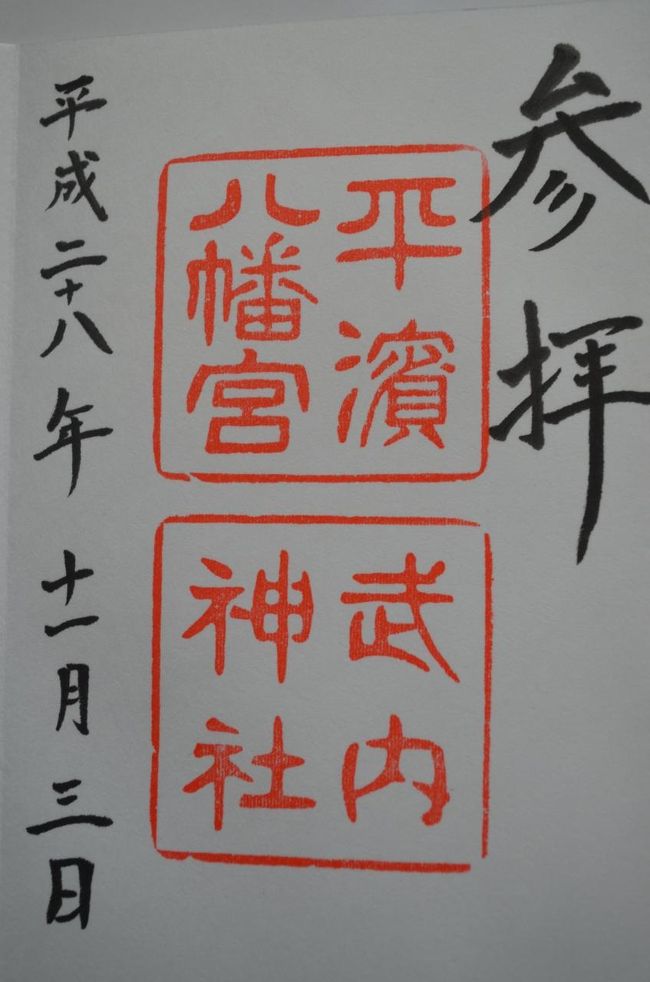 参拝
平濱
八幡宮
武内
神社
平成二十八年十一月三日